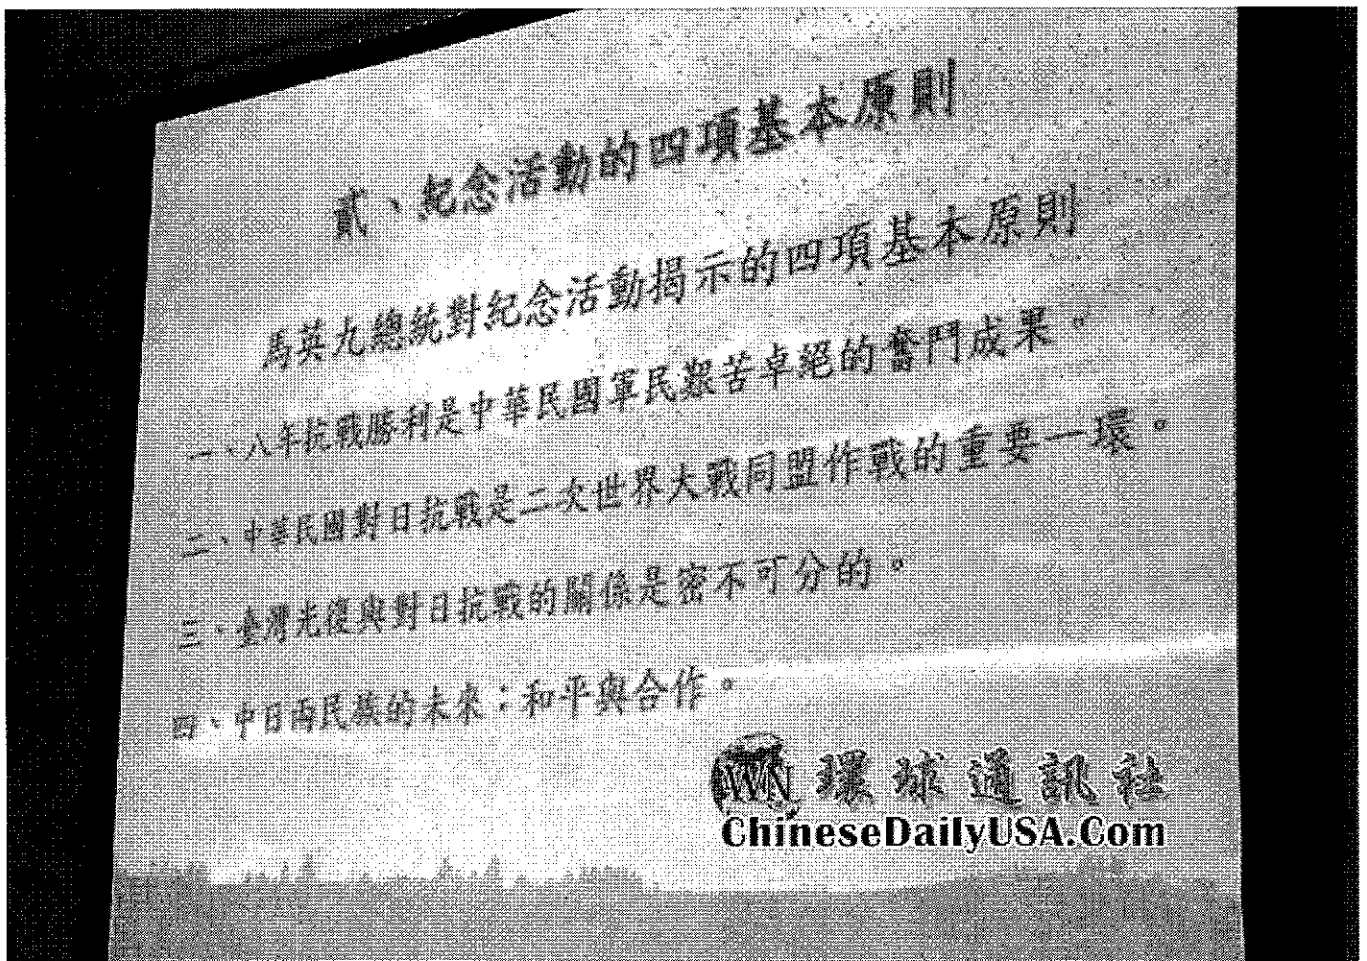 貳、紀念活動的四項基本原則
馬英九總統對紀念活動揭示的四項基本原則
一、八年抗戰勝利是中華民國軍民艱苦卓絕的奮鬥成果。
二、中華民國對日抗戰是二次世界大戰同盟作戰的重要一環。
三、臺灣光復與對日抗戰的關係是密不可分的。
四、中日兩民族的未來：和平與合作。
WN 環球通訊社
ChineseDailyUSA.Com